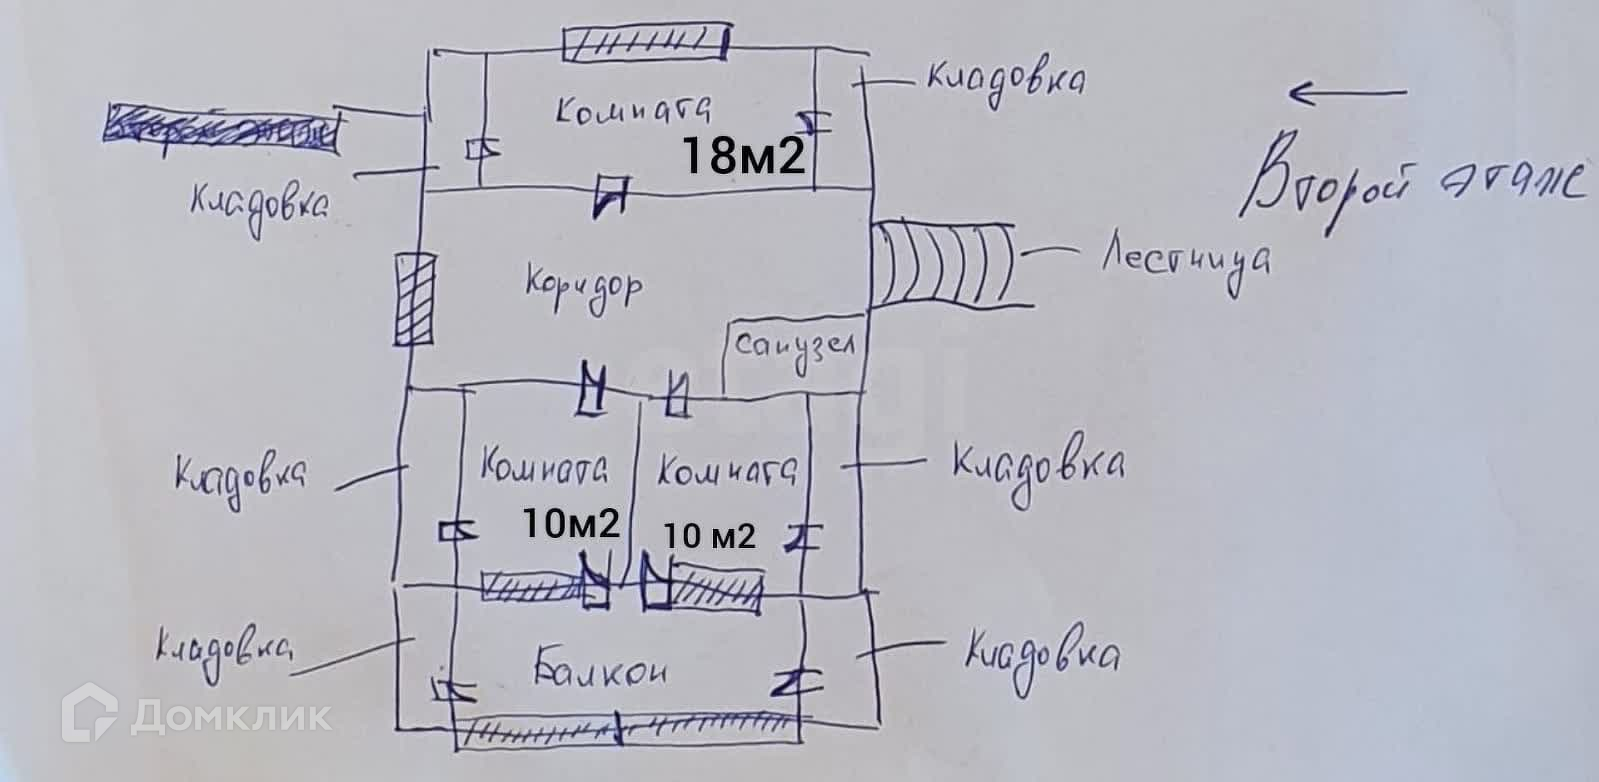 Кладовка
Комната
18м2
Второй этаж
Кладовка
Лестница
Коридор
Санузел
Кладовка
Комната
Комната
Кладовка
10м2
10 м2
Кладовка
Балкон
Кладовка
Домклик